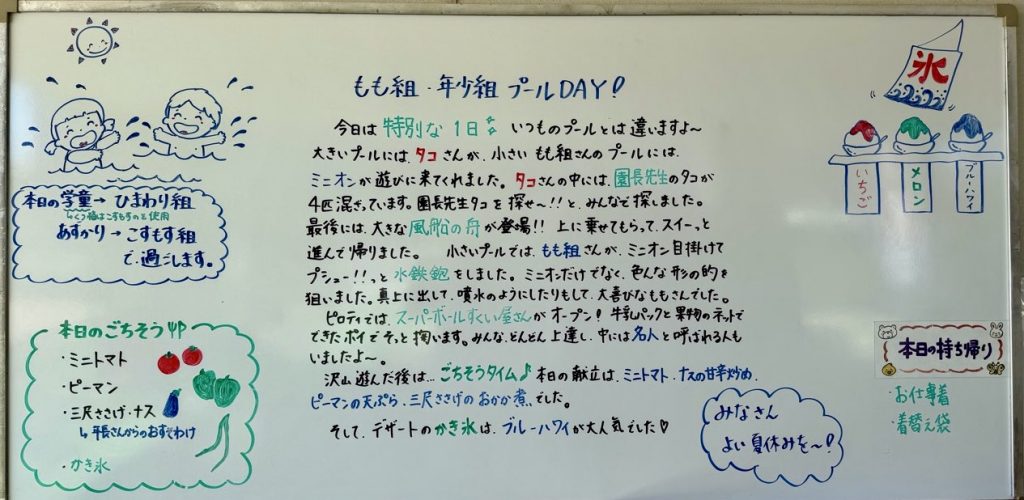 もも組・年少組 プールDAY!
今日は 特別な1日 いつものプールとは違いますよ〜
大きいプールには、タコさんが、小さい もも組さんのプールには、
ミニオンが遊びに来てくれました。タコさんの中には、園長先生のタコが
4匹混ざっています。園長先生タコを探せ〜!!と、みんなで探しました。
最後には、大きな風船の舟が登場!! 上に乗せてもらって、スイーっと
進んで帰りました。 小さいプールでは、もも組さんが、ミニオン目掛けて
プシュー!!っと水鉄砲をしました。ミニオンだけでなく、色んな形の的を
狙いました。真上に出して、噴水のようにしたりもして、大喜びなももさんでした。
ピロティでは、スーパーボールすくい屋さんがオープン! 牛乳パックと果物のネットで
できたポイでそっと掬います。みんな、どんどん上達し、中には名人と呼ばれる人も
いましたよ〜。
沢山遊んだ後は…ごちそうタイム♪ 本日の献立は、ミニトマト・ナスの甘辛炒め、
ピーマンの天ぷら、三尺ささげのおかか煮、でした。
そして、デザートのかき氷は、ブルーハワイが大人気でした♡
本日の学童→ひまわり組
あずかり→こすもす組
で過ごします。
本日のごちそう
・ミニトマト
・ピーマン
・三尺ささげ・ナス
↳平長さんからのおすそわけ
・かき氷
氷
いちご
メロン
ブルーハワイ
本日の持ち帰り
・お仕事着
・着替え袋
みなさん
よい夏休みを〜!